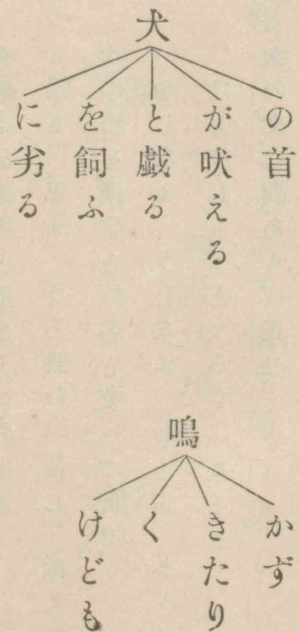 犬
の首
が吠える
と戯る
を飼ふ
に劣る
鳴
かず
きたり
く
けども